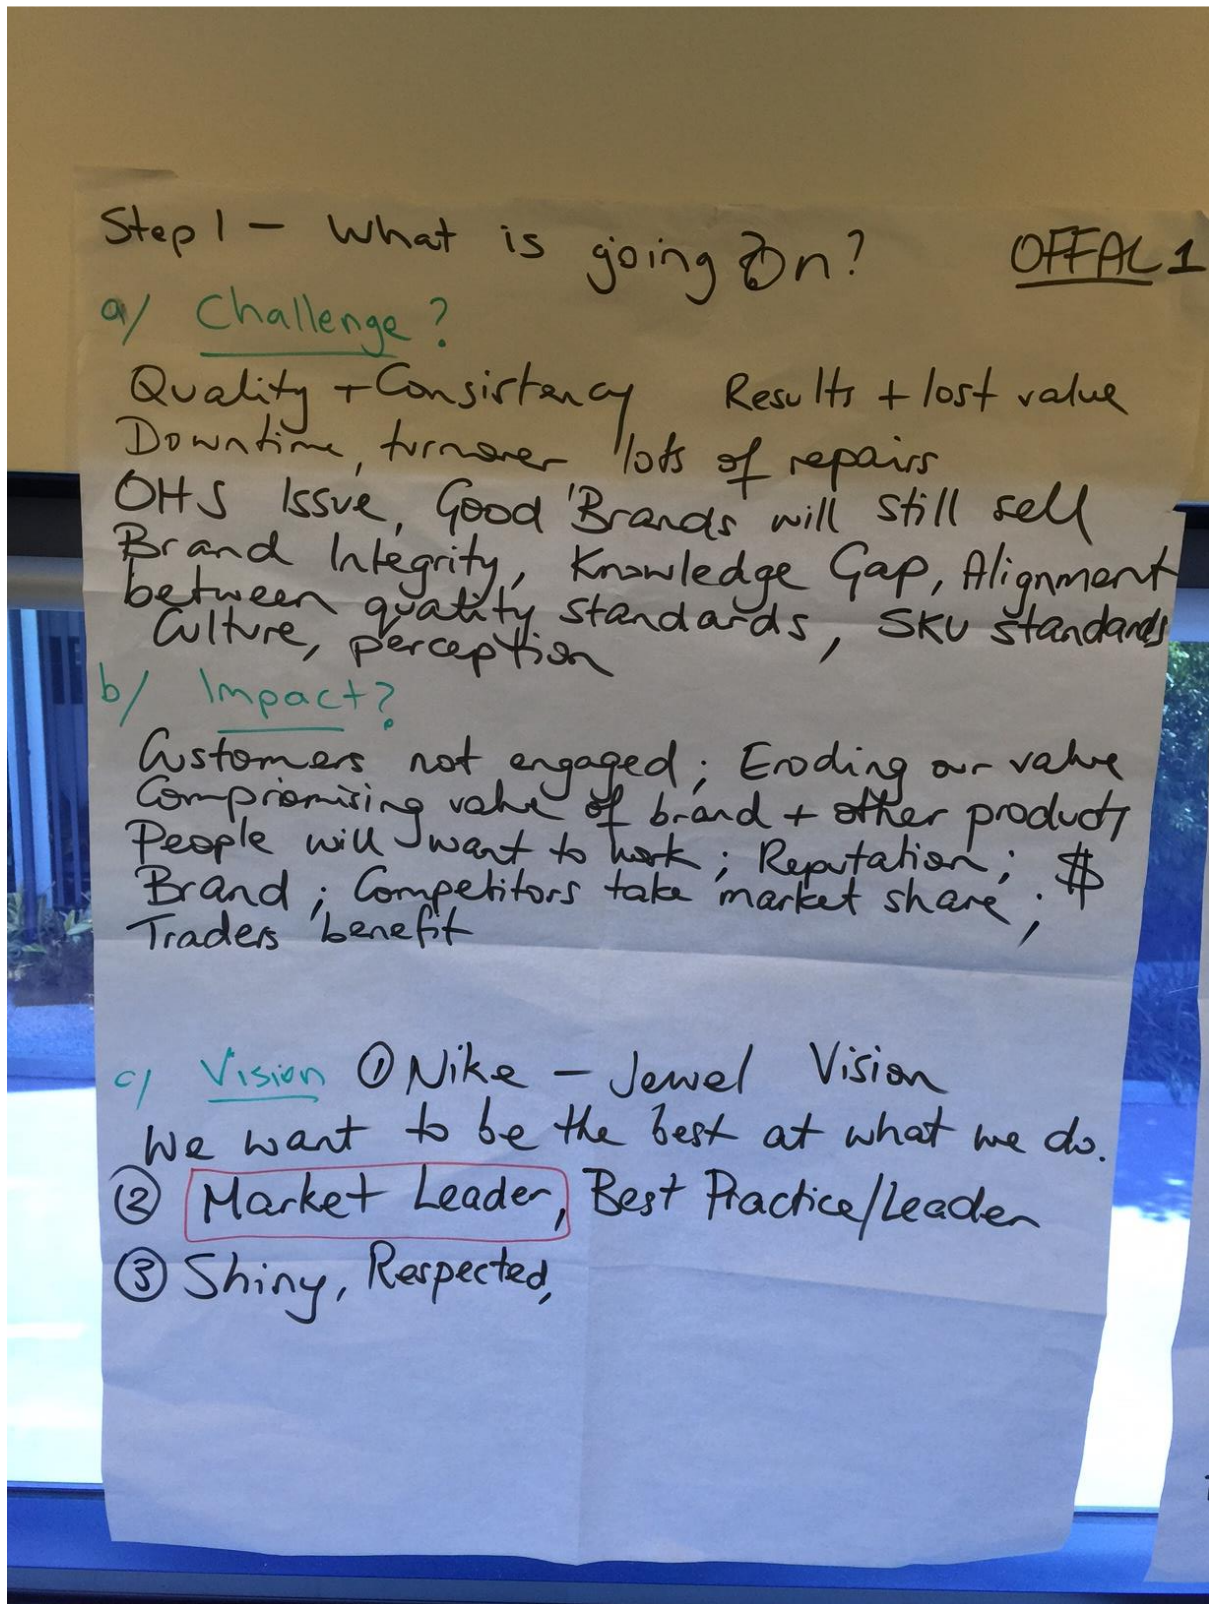 Step 1 - What is going On? OFFAL 1
a/ Challenge?
Quality + Consistency Results + lost value
Downtime, turnover lots of repairs
OHS Issue, Good Brands will still sell
Brand Integrity, Knowledge Gap, Alignment
between quality standards, SKU standards
Culture, perception
b/ Impact?
Customers not engaged; Eroding our value
Compromising value of brand + other products
People will want to work; Reputation; $
Brand; Competitors take market share;
Traders benefit
c/ Vision ① Nike - Jewel Vision
We want to be the best at what we do.
② Market Leader, Best Practice/Leader
③ Shiny, Respected,